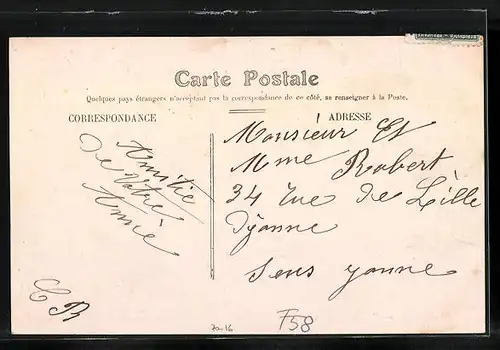 Carte Postale
Quelques pays étrangers n'acceptant pas la correspondance de ce côté, se renseigner à la Poste.
CORRESPONDANCE
ADRESSE
Amitie
de Votre
Amie
C B
Monsieur Et
Mme Robert
34 rue de Lille
Sens yonne
70-16
F58